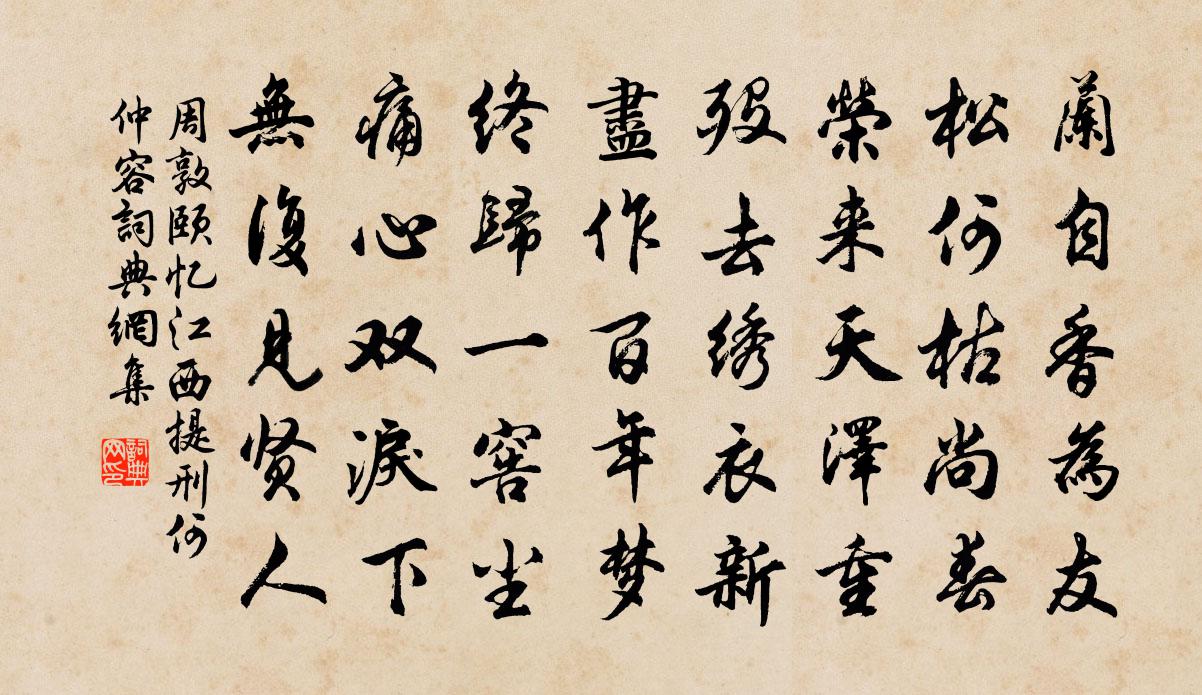 蘭自香為友
松何枯尚春
榮来天澤重
殁去绣衣新
盡作百年梦
终歸一窖尘
痛心双淚下
無復見贤人
周敦颐忆江西提刑何
仲容詞典網集
詞典
网印